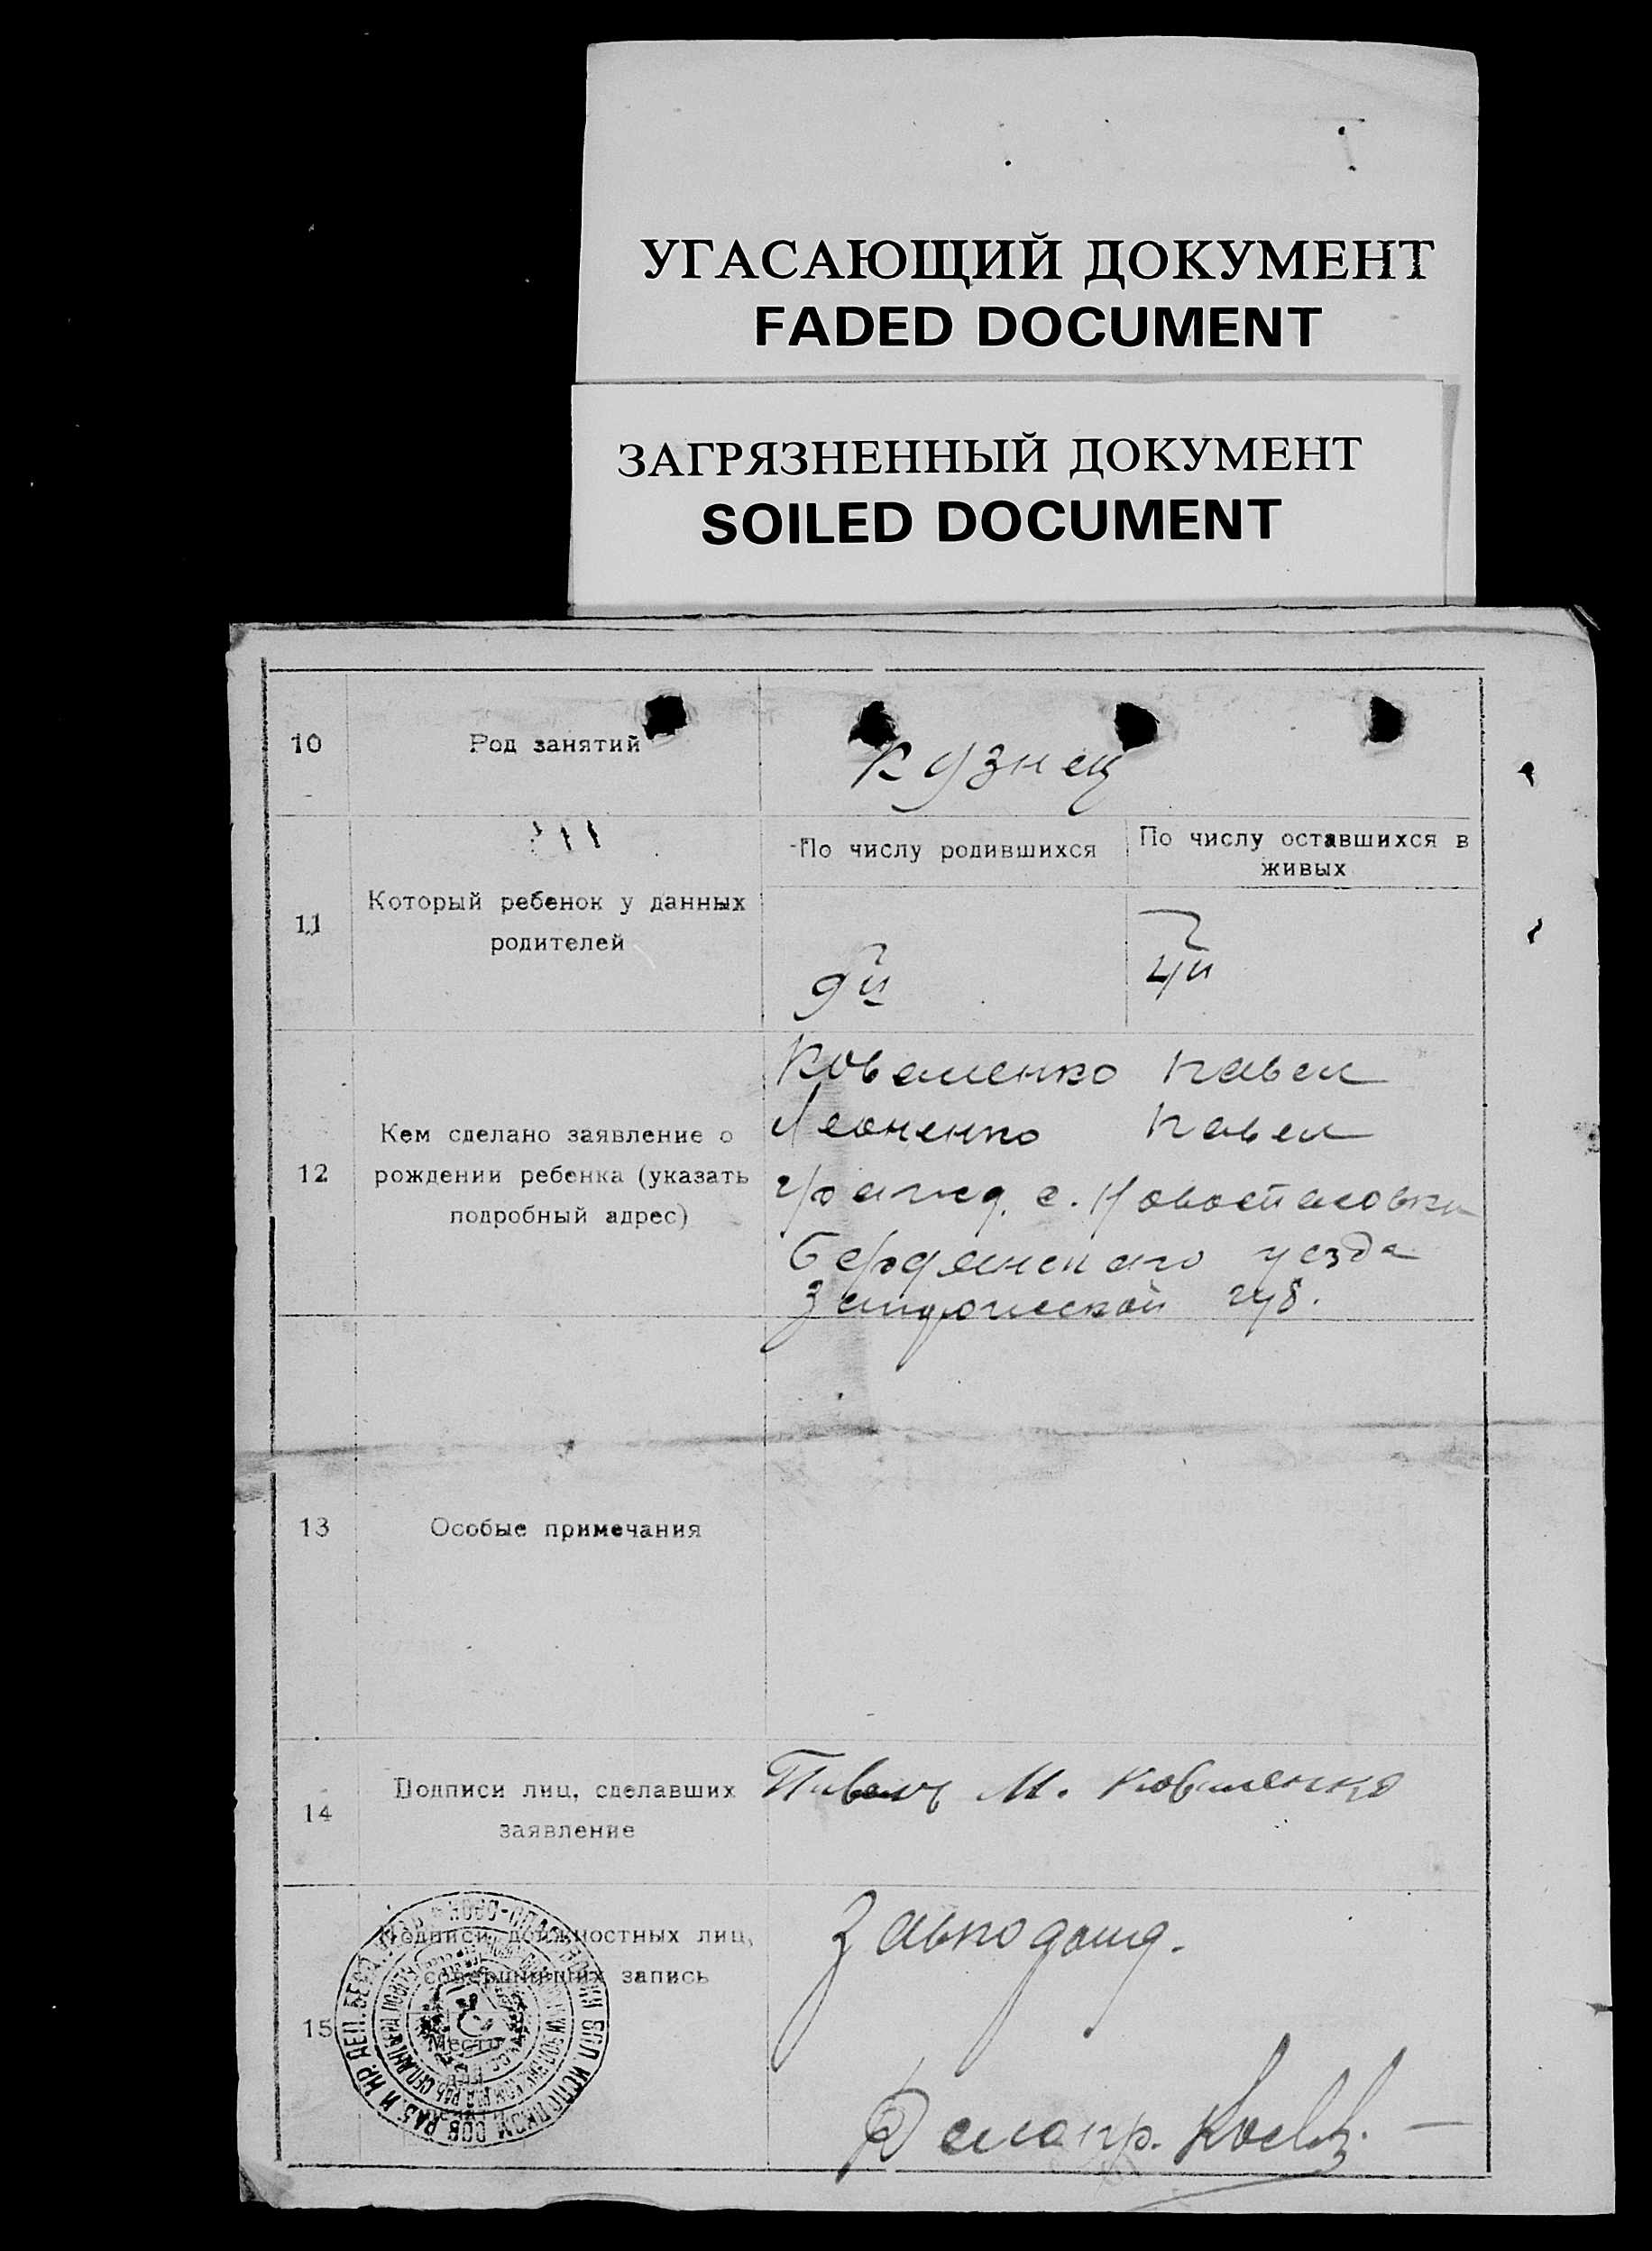 УГАСАЮЩИЙ ДОКУМЕНТ
FADED DOCUMENT
ЗАГРЯЗНЕННЫЙ ДОКУМЕНТ
SOILED DOCUMENT
10 Род занятий Кузнец
11 Который ребенок у данных родителей
По числу родившихся
По числу оставшихся в живых
9й
4й
12 Кем сделано заявление о
рождении ребенка (указать
подробный адрес)
Коваленко Павел
Павел
гражд. с. Новоспасовки
Бердянского уезда
губ.
13 Особые примечания
14 Подписи лиц, сделавших
заявление
М. Коваленко
15 Подписи должностных лиц,
совершивших запись
Место
Завподотд.
Делопр.